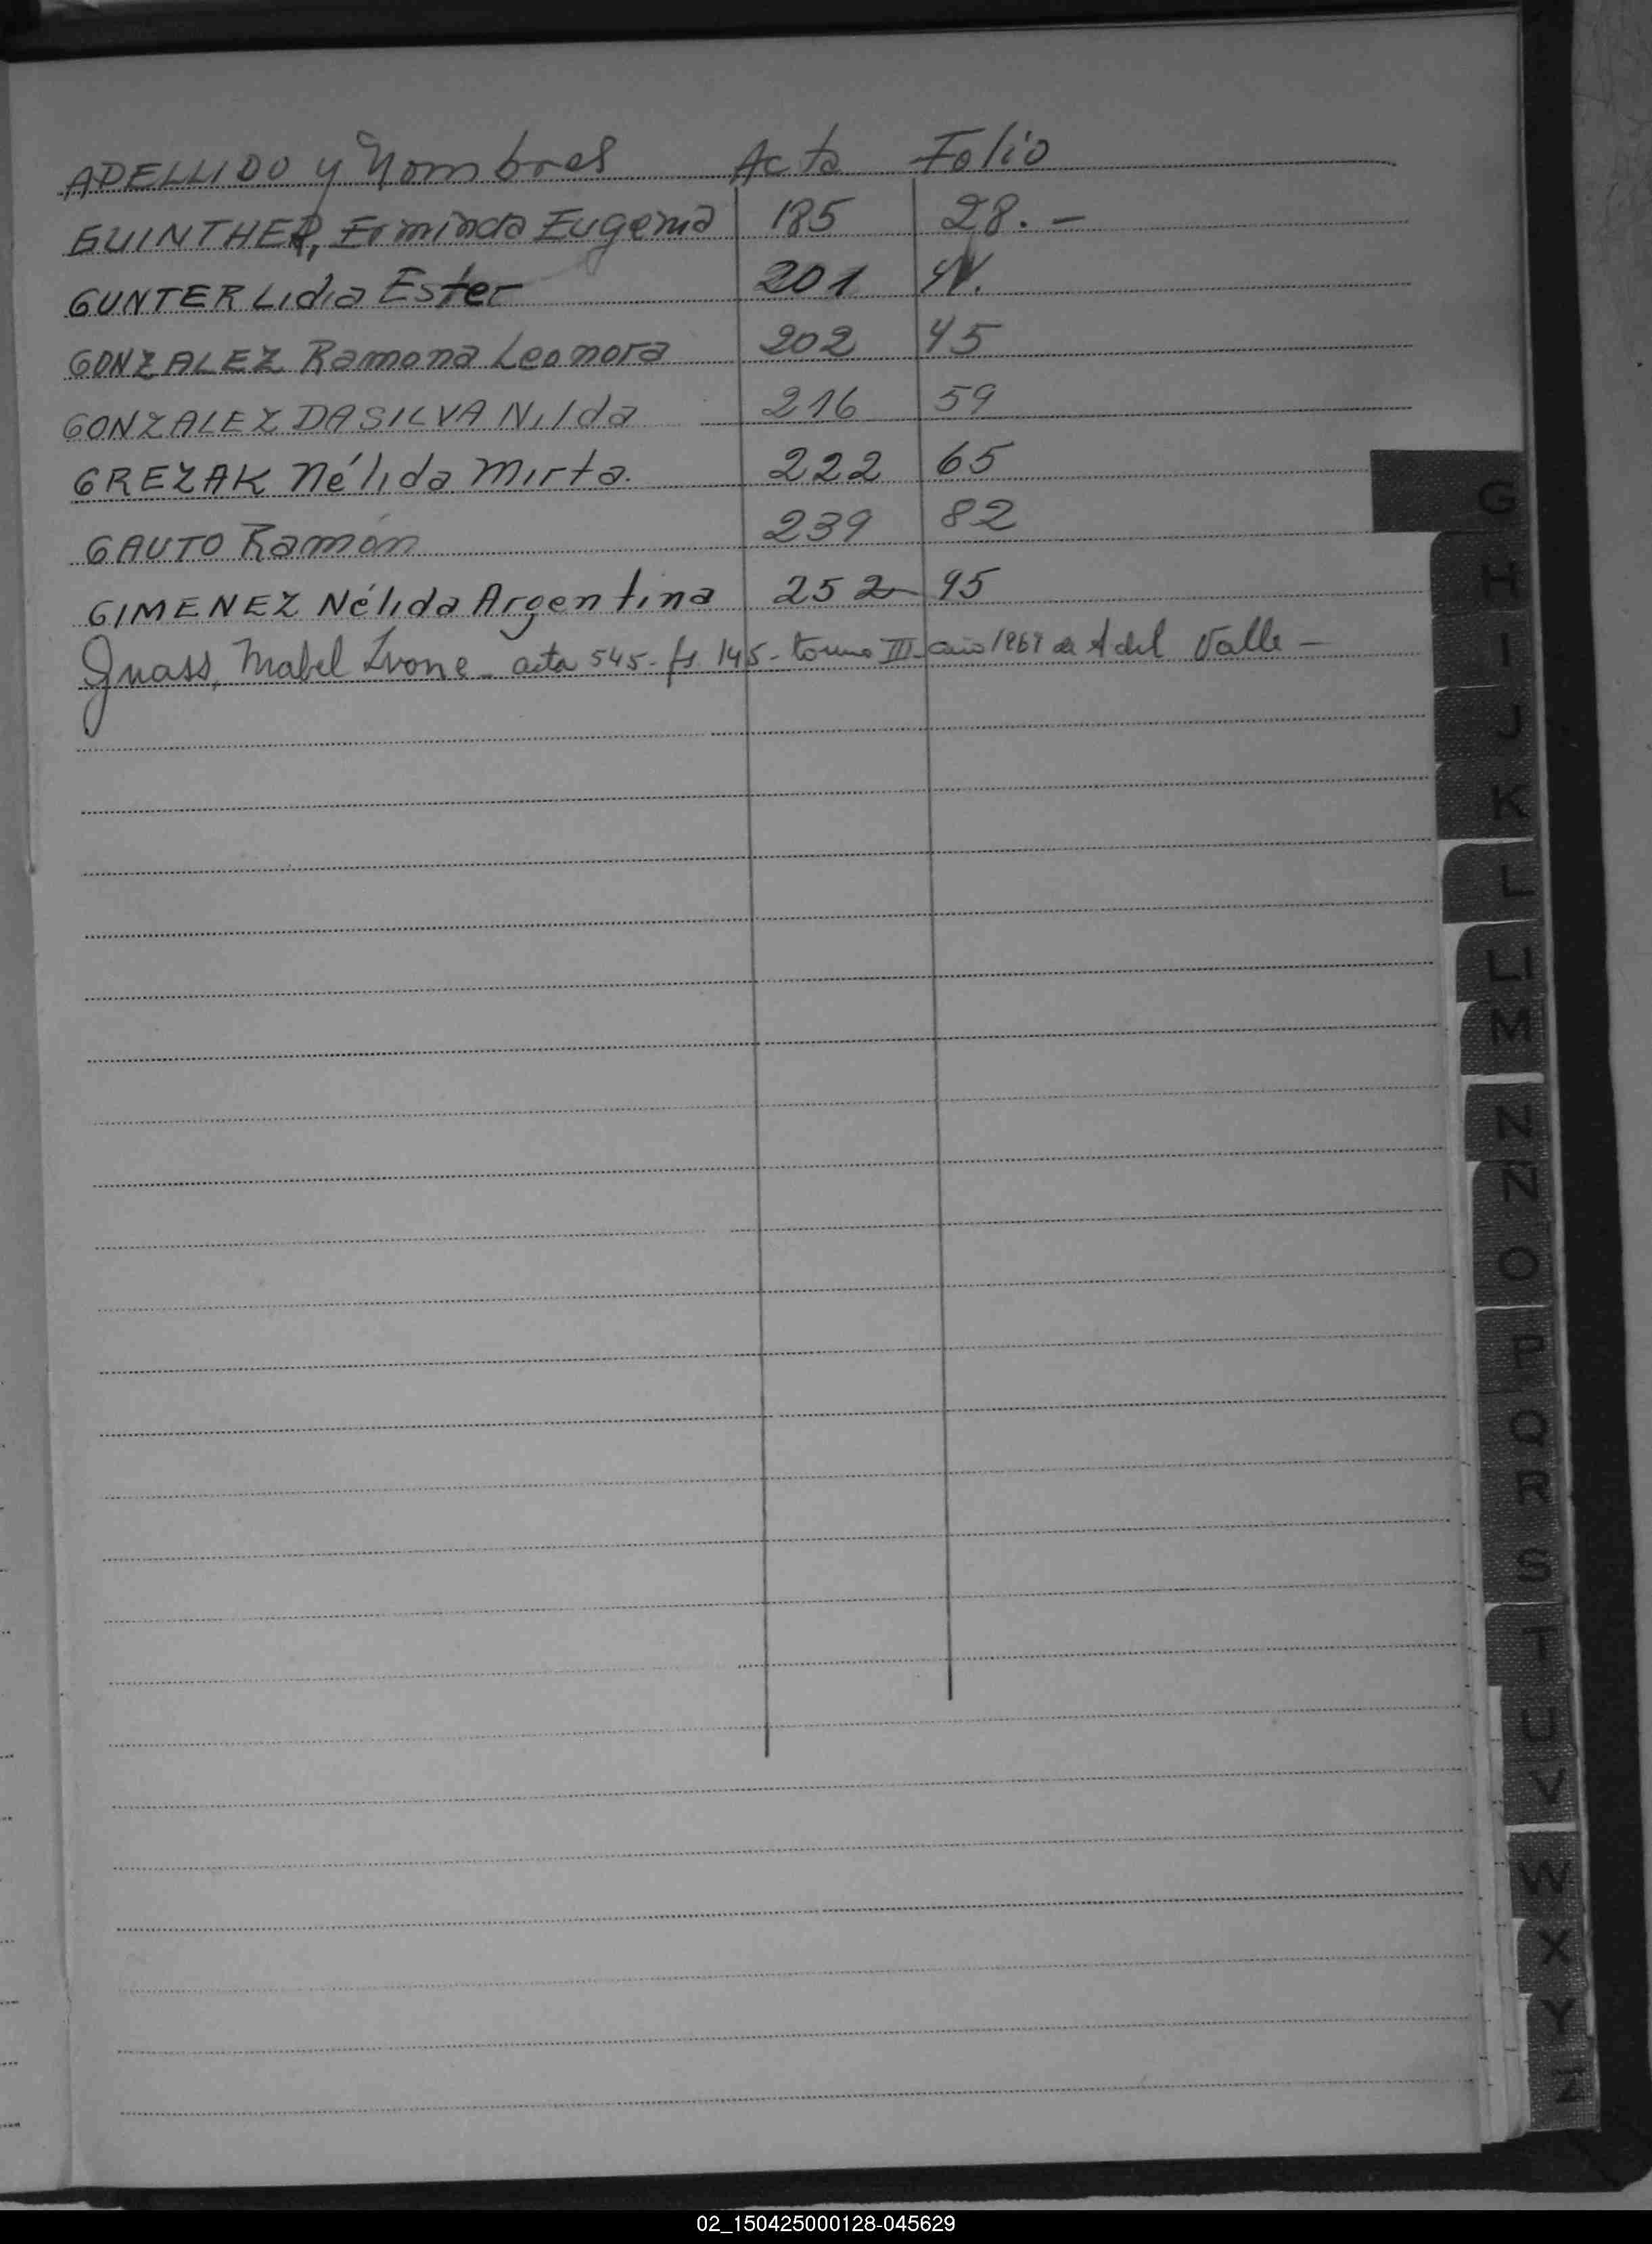 APELLIDO y Nombres Acta Folio
GUINTHER, Erminda Eugenia 185 28.-
GUNTER Lidia Ester 201
GONZALEZ Ramona Leonora 202 45
GONZALEZ DASILVA Nilda 216 59
GREZAK Nélida Mirta. 222 65
GAUTO Ramón 239 82
GIMENEZ Nélida Argentina 252 95
Gnass, Mabel Ivone - acta 545 - fs 145 - tomo III - año de A del Valle -
G
H
I
J
K
L
LI
M
N
Ñ
O
P
Q
R
S
T
U
V
W
X
Y
Z
02_150425000128-045629